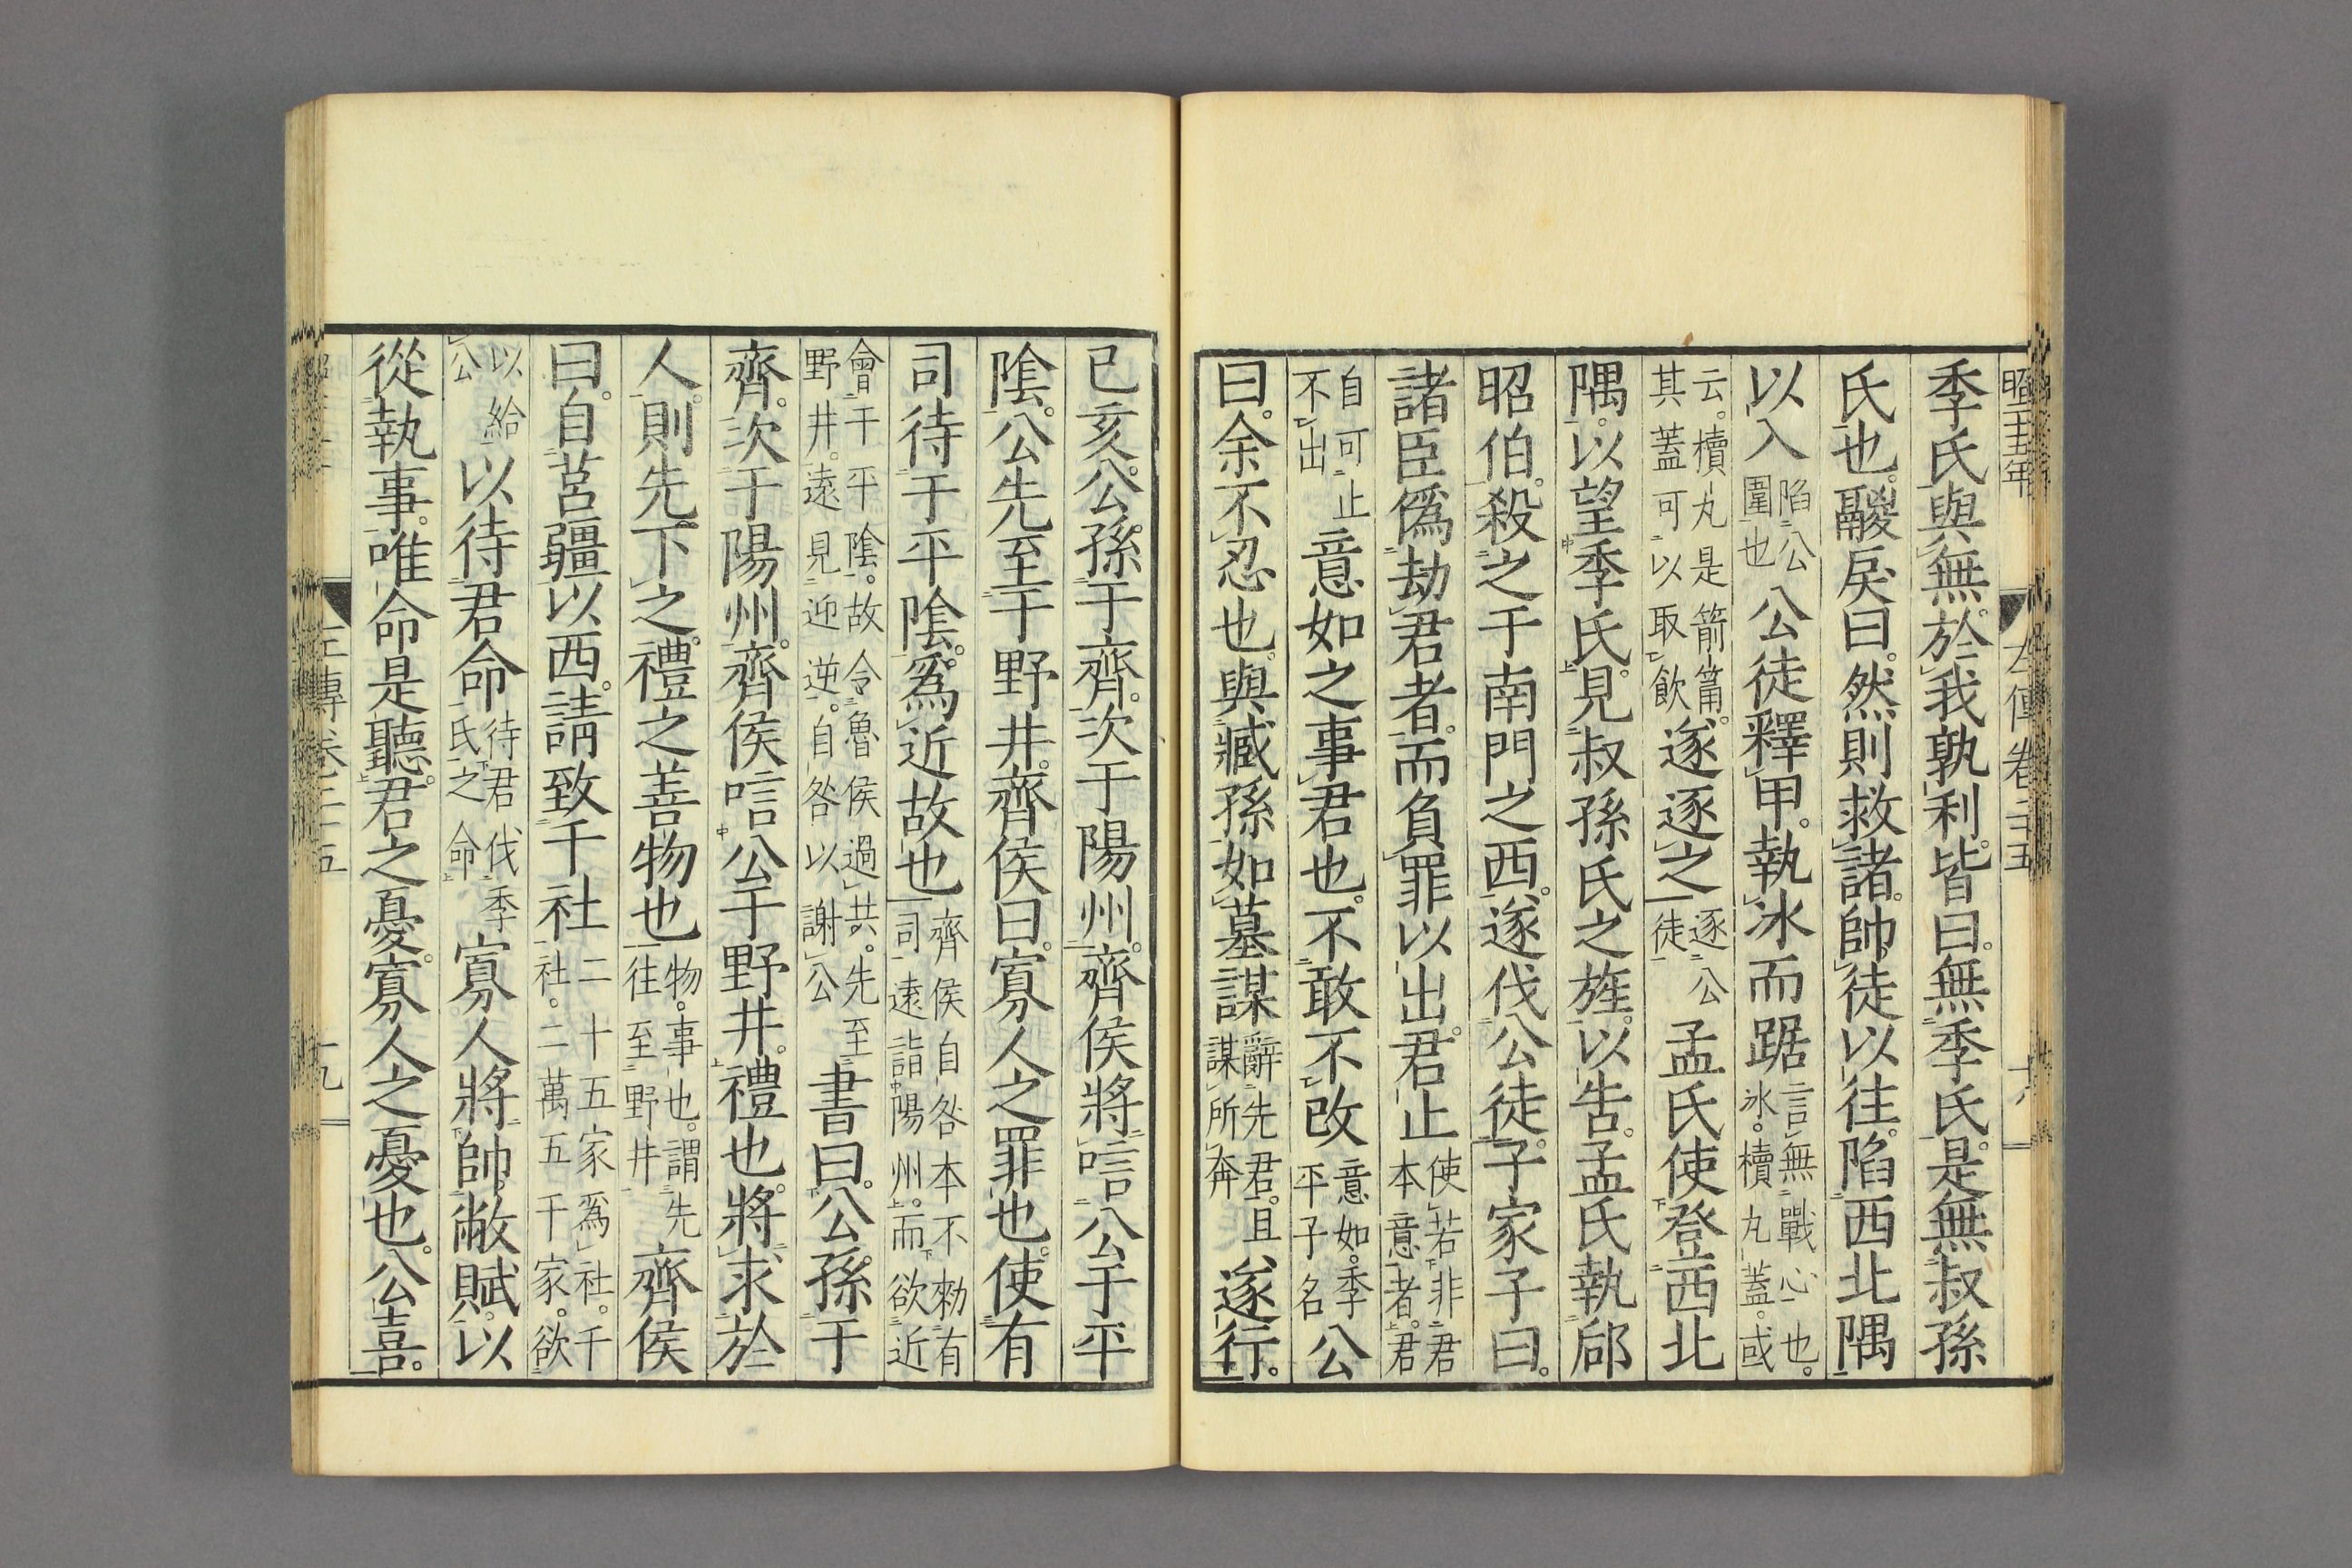 昭二十五年 左傳卷二十五
季氏與無於我孰利皆曰無季氏是無叔孫
氏也鬷戾曰然則救諸帥徒以往陷西北隅
以入陷公圍也公徒釋甲執冰而踞言無戰心也冰櫝丸蓋或
云櫝丸是箭筩其蓋可以取飲遂逐之逐公徒孟氏使登西北
隅以望季氏見叔孫氏之旌以告孟氏執郈
昭伯殺之于南門之西遂伐公徒子家子曰
諸臣僞劫君者而負罪以出君止使若非君本意者君
自可止不出意如之事君也不敢不改意如季平子名公
曰余不忍也與臧孫如墓謀辭先君且謀所奔遂行
己亥公孫于齊次于陽州齊侯將唁公于平
陰公先至于野井齊侯曰寡人之罪也使有
司待于平陰爲近故也齊侯自咎本不勑有司遠詣陽州而欲近
會于平陰故令魯侯過共先至野井遠見迎逆自咎以謝公書曰公孫于
齊次于陽州齊侯唁公于野井禮也將求於
人則先下之禮之善物也物事也謂先往至野井齊侯
曰自莒疆以西請致千社二十五家爲社千社二萬五千家欲
以給公以待君命待君伐季氏之命寡人將帥敝賦以
從執事唯命是聽君之憂寡人之憂也公喜
左傳卷二十五 十九